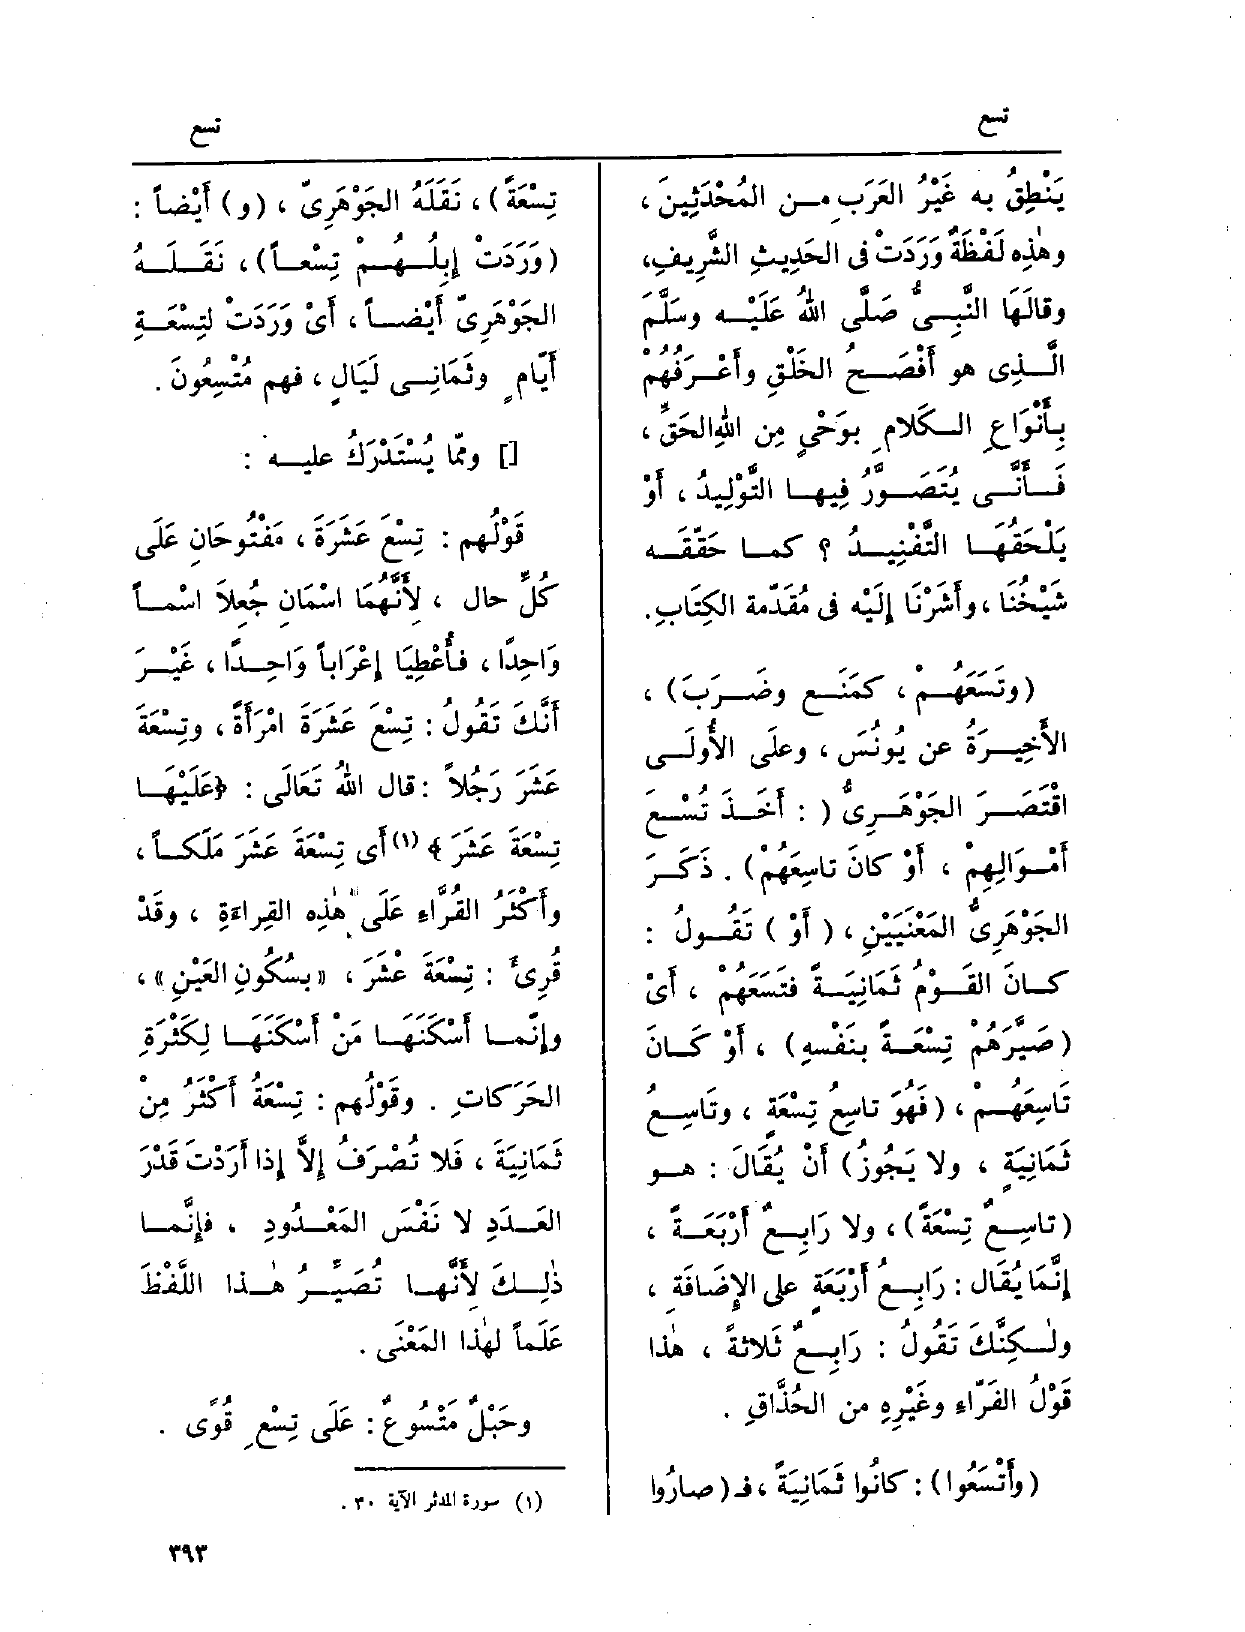 تسع
تسع
يَنْطِقُ به غَيْرُ العَرَبِ مـن المُحْدَثِينَ ،
وهٰذِه لَفْظَةٌ وَرَدَتْ فى الحَدِيثِ الشَّرِيفِ،
وقالَهَا النَّبِـىُّ صَلَّى اللهُ عَلَيْـه وسَلَّمَ
الَّـذِى هو أَفْصَـحُ الخَلْقِ وأَعْـرَفُهُمْ
بِأَنْوَاعِ الـكَلَامِ بوَحْيٍ مِن اللهِ الحَقِّ ،
فَـأَنَّـى يُتَصَـوَّرُ فِيهـا التَّوْلِيدُ ، أَوْ
يَلْحَقُهَـا التَّفْنِيـدُ ؟ كمـا حَقَّقَـه
شَيْخُنَا ، وأَشَرْنَا إِلَيْه فى مُقَدّمة الكِتَابِ.
(وتَسَعَهُـمْ ، كمَنَـع وضَـرَبَ) ،
الأَخِيـرَةُ عن يُونُسَ ، وعلَى الأُولَـى
اقْتَصَـرَ الجَوْهَـرِىُّ ( : أَخَـذَ تُسْـعَ
أَمْـوَالِهِمْ ، أَوْ كانَ تاسِعَهُمْ) . ذَكَـرَ
الجَوْهَرِىُّ المَعْنَيَيْنِ ، ( أَوْ ) تَقُـولُ :
كـانَ القَـوْمُ ثَمَانِيَـةً فتَسَعَهُمْ ، أَىْ
(صَيَّرَهُمْ تِسْعَـةً بنَفْسِهِ) ، أَوْ كَـانَ
تَاسِعَهُـمْ ، (فَهُوَ تاسِعُ تِسْعَةٍ ، وتَاسِـعُ
ثَمَانِيَةٍ ، ولا يَجُوز) أَنْ يُقَالَ : هـو
(تاسِـعٌ تِسْعَةً) ، ولا رَابِـعٌ أَرْبَعَـةً ،
إِنَّمَا يُقَال : رَابِـعُ أَرْبَعَةٍ على الإِضَافَةِ ،
ولٰـكِنَّكَ تَقُولُ : رَابِـعٌ ثَلاثَةً ، هٰذا
قَوْلُ الفَرَّاءِ وغَيْرِهِ من الحُذَّاقِ .
(وأَتْسَعُوا) : كَانُوا ثَمَانِيَةً ، فـ (صارُوا
تِسْعَةً) ، نَقَلَهُ الجَوْهَرِىّ ، (و) أَيْضاً :
(وَرَدَتْ إِبِلُـهُـمْ تِسْعـاً) ، نَقَـلَـهُ
الجَوْهَرِىّ أَيْضـاً ، أَىْ وَرَدَتْ لتِسْعَـةِ
أَيّامٍ وثَمَانِـى لَيَالٍ ، فهم مُتْسِعُونَ .
[] وممّا يُسْتَدْرَكُ عليـه :
قَوْلُهم : تِسْعَ عَشَرَةَ ، مَفْتُوحَانِ عَلَى
كُلِّ حال ، لِأَنَّهُمَا اسْمَانِ جُعِلَا اسْمـاً
وَاحِدًا ، فأُعْطِيَا إِعْرَاباً وَاحِـدًا ، غَيْـرَ
أَنَّكَ تَقُولُ : تِسْعَ عَشَرَةَ امْرَأَةً ، وتِسْعَةَ
عَشَرَ رَجُلًا : قال اللهُ تَعَالَى : ﴿عَلَيْهَـا
تِسْعَةَ عَشَرَ ﴾ (١) أَى تِسْعَةَ عَشَرَ مَلَكـاً ،
وأَكْثَرُ القُرَّاءِ عَلَى هٰذِه القِراءَةِ ، وقَدْ
قُرِئَ : تِسْعَةَ عْشَرَ ، «بسُكُونِ العَيْنِ» ،
وإِنَّمـا أَسْكَنَهَـا مَنْ أَسْكَنَهَـا لِكَثْرَةِ
الحَرَكاتِ . وقَوْلُهم : تِسْعَةُ أَكْثَرُ مِنْ
ثَمَانِيَةَ ، فَلا تُصْرَفُ إِلَّا إِذا أَرَدْتَ قَدْرَ
العَـدَدِ لا نَفْسَ المَعْـدُودِ ، فإِنَّمـا
ذٰلِـكَ لِأَنَّهـا تُصَيِّـرُ هـٰذا اللَّفْظَ
عَلَماً لهٰذا المَعْنَى .
وحَبْلٌ مَتْسُوعٌ : عَلَى تِسْعِ قُوًى .
(١) سورة المدثر الآية ٣٠ .
٣٩٣